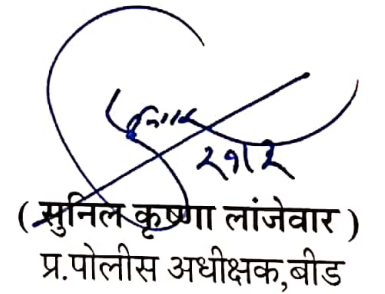 २१/२
( सुनिल कृष्णा लांजेवार )
प्र.पोलीस अधीक्षक,बीड